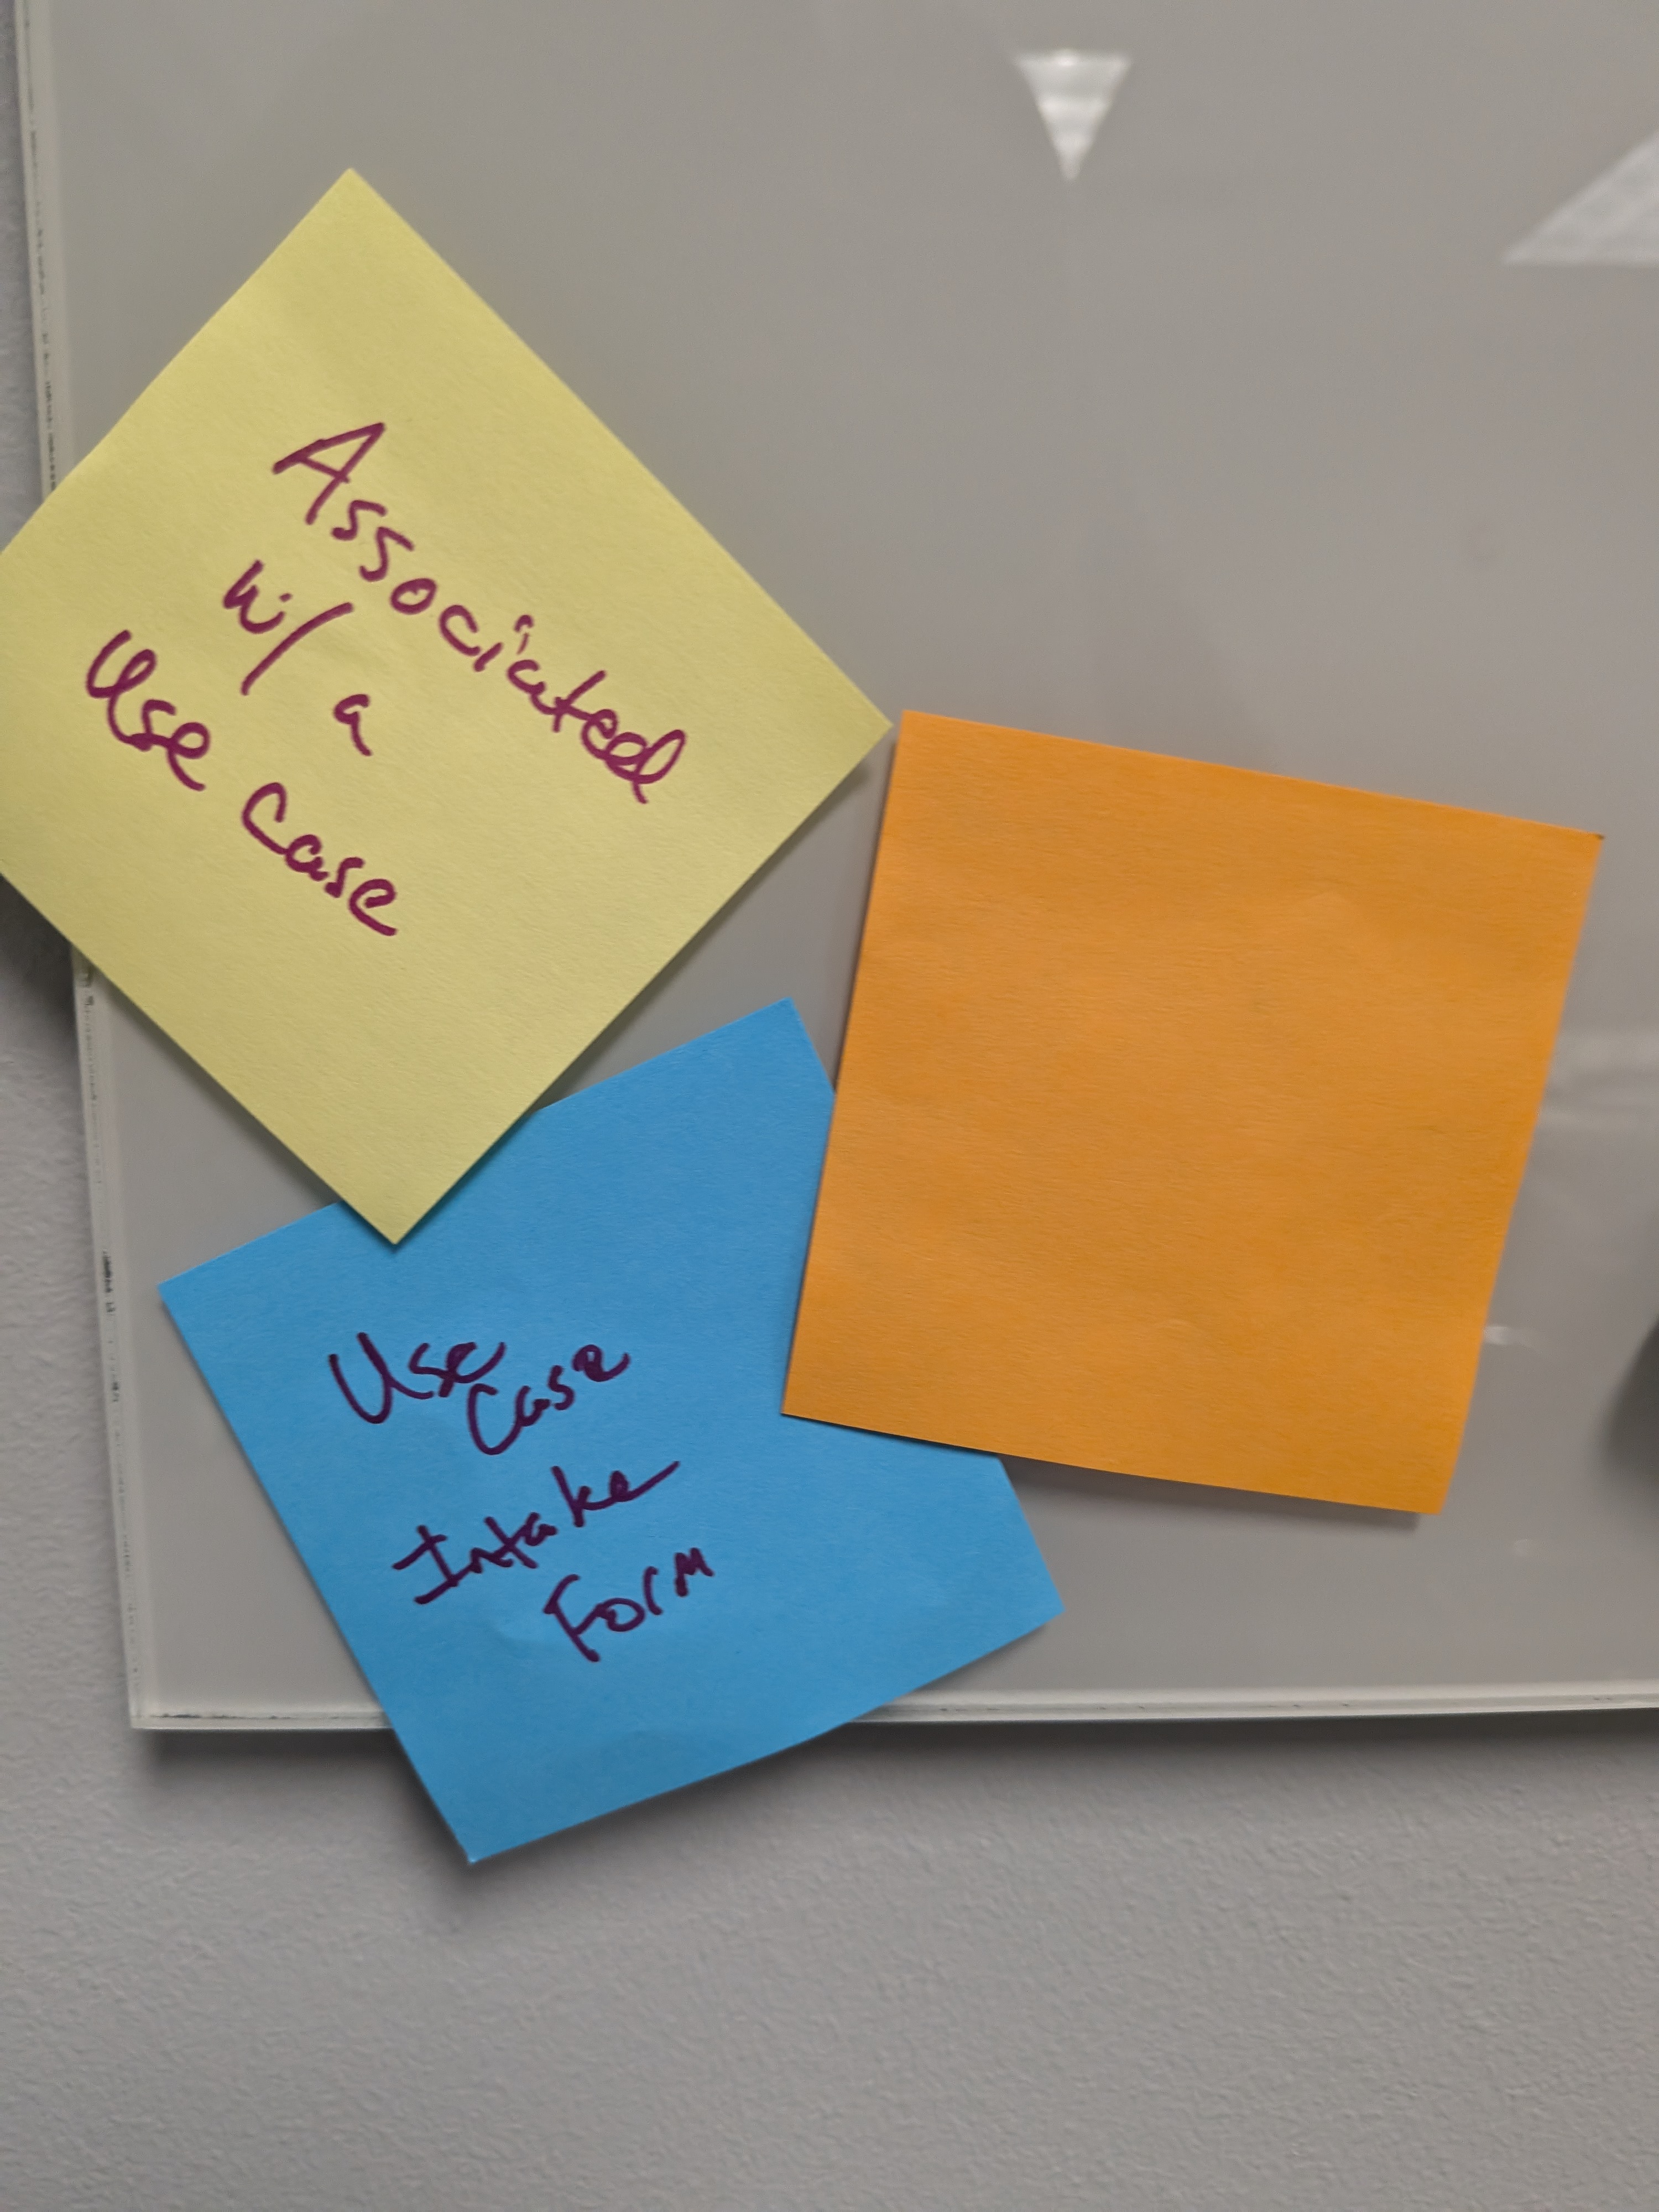 Associated
w/ a
Use Case
Use
Case
Intake
Form